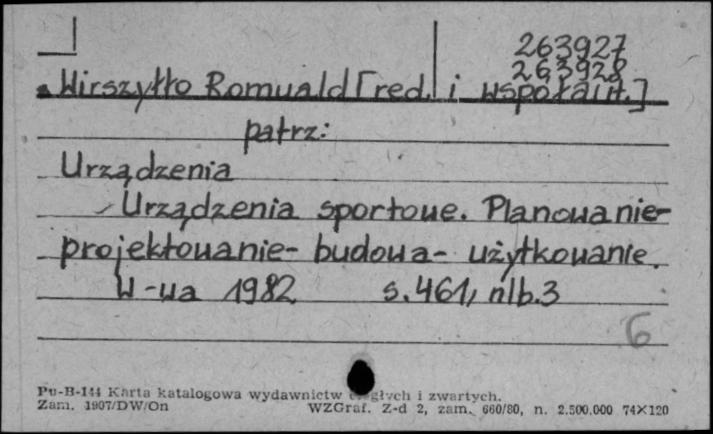 263927
263928
Wirszyłło Romuald [red. i współaut.]
patrz:
Urządzenia
Urządzenia sportowe. Planowanie-
projektowanie- budowa- użytkowanie.
W-wa 1982 s. 461, nlb. 3
6
Pu-B-144 Karta katalogowa wydawnictw ciągłych i zwartych.
Zam. 1907/DW/On WZGraf. Z-d 2, zam. 660/80, n. 2.500.000 74×120